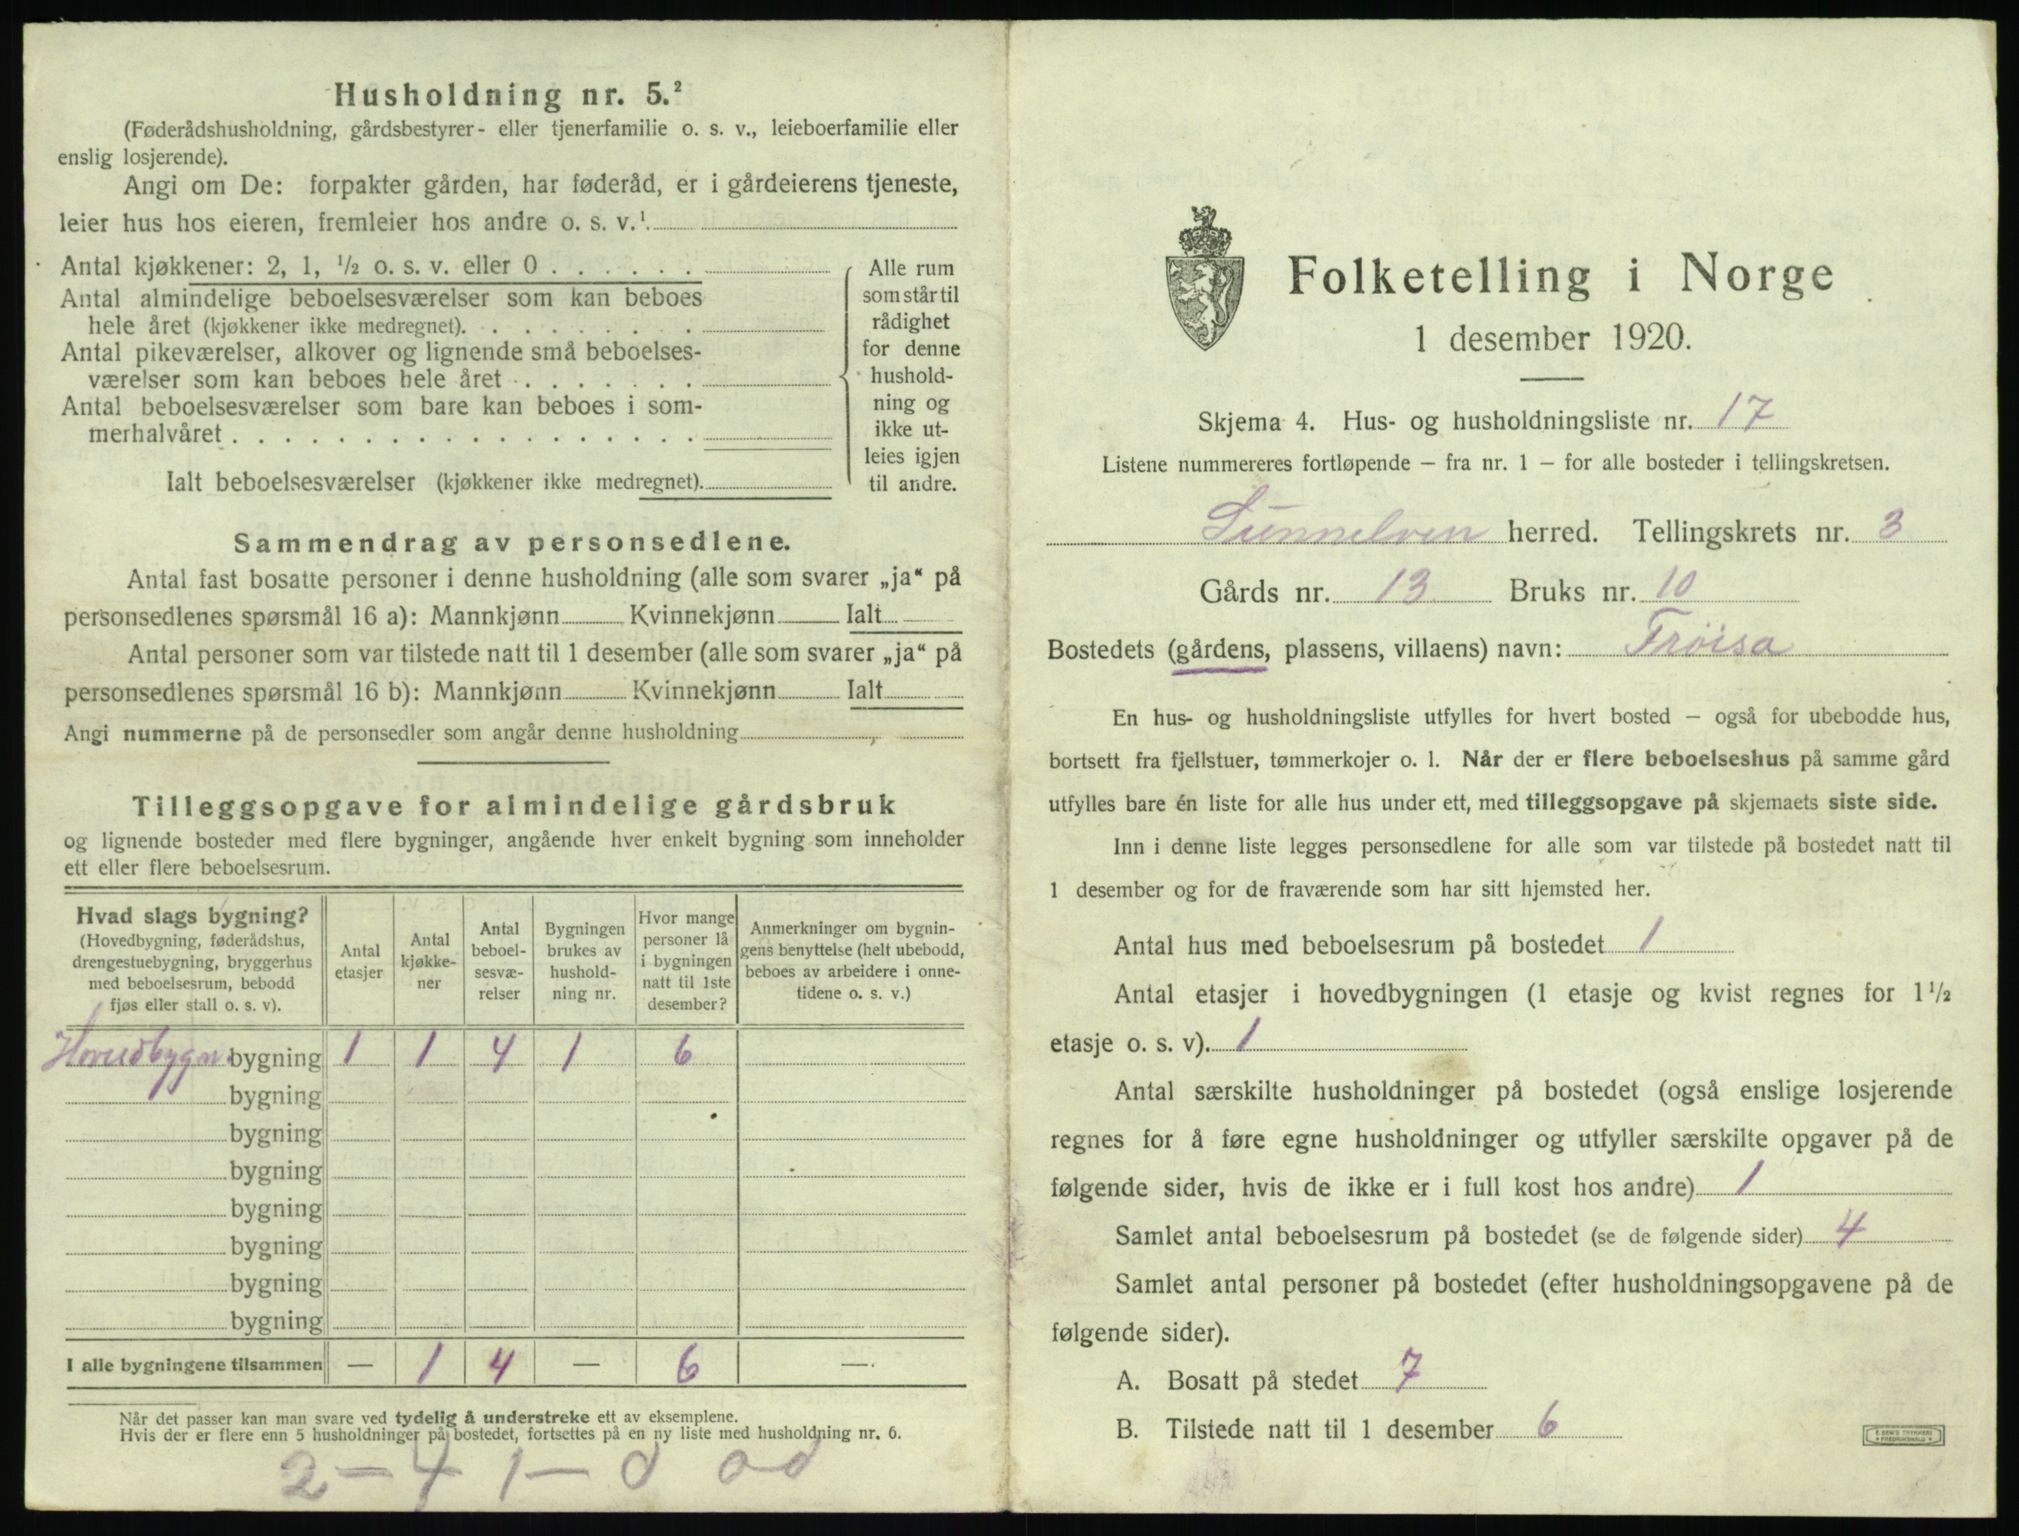 Husholdning nr. 5.²
(Føderådshusholdning, gårdsbestyrer- eller tjenerfamilie o. s. v., leieboerfamilie eller
enslig losjerende).
Angi om De: forpakter gården, har føderåd, er i gårdeierens tjeneste,
leier hus hos eieren, fremleier hos andre o. s. v.¹
Antal kjøkkener: 2, 1, ½ o. s. v. eller 0
Antal almindelige beboelsesværelser som kan beboes
hele året (kjøkkener ikke medregnet).
Antal pikeværelser, alkover og lignende små beboelses-
værelser som kan beboes hele året
Antal beboelsesværelser som bare kan beboes i som-
merhalvåret
Ialt beboelsesværelser (kjøkkener ikke medregnet).
Alle rum
som står til
rådighet
for denne
hushold-
ning og
ikke ut-
leies igjen
til andre.
Sammendrag av personsedlene.
Antal fast bosatte personer i denne husholdning (alle som svarer „ja“ på
personsedlenes spørsmål 16 a): Mannkjønn Kvinnekjønn Ialt
Antal personer som var tilstede natt til 1 desember (alle som svarer „ja“ på
personsedlenes spørsmål 16 b): Mannkjønn Kvinnekjønn Ialt
Angi nummerne på de personsedler som angår denne husholdning
Tilleggsopgave for almindelige gårdsbruk
og lignende bosteder med flere bygninger, angående hver enkelt bygning som inneholder
ett eller flere beboelsesrum.
Hvad slags bygning?
(Hovedbygning, føderådshus,
drengestuebygning, bryggerhus
med beboelsesrum, bebodd
fjøs eller stall o. s. v).
Antal
etasjer
Antal
kjøkke-
ner
Antal
beboel-
sesvæ-
relser
Bygningen
brukes av
hushold-
ning nr.
Hvor mange
personer lå
i bygningen
natt til 1ste
desember?
Anmerkninger om bygnin-
gens benyttelse (helt ubebodd,
beboes av arbeidere i onne-
tidene o. s. v.)
Hovedbygn. bygning 1 1 4 1 6
bygning
bygning
bygning
bygning
bygning
bygning
bygning
I alle bygningene tilsammen — 1 4 — 6 —
Når det passer kan man svare ved tydelig å understreke ett av eksemplene.
Hvis der er flere enn 5 husholdninger på bostedet, fortsettes på en ny liste med husholdning nr. 6.
2 — 4 1 —
Folketelling i Norge
1 desember 1920.
Skjema 4. Hus- og husholdningsliste nr. 17
Listene nummereres fortløpende — fra nr. 1 — for alle bosteder i tellingskretsen.
Sunnelven herred. Tellingskrets nr. 3
Gårds nr. 13 Bruks nr. 10
Bostedets (gårdens, plassens, villaens) navn: Frøisa
En hus- og husholdningsliste utfylles for hvert bosted — også for ubebodde hus,
bortsett fra fjellstuer, tømmerkojer o. l. Når der er flere beboelseshus på samme gård
utfylles bare én liste for alle hus under ett, med tilleggsopgave på skjemaets siste side.
Inn i denne liste legges personsedlene for alle som var tilstede på bostedet natt til
1 desember og for de fraværende som har sitt hjemsted her.
Antal hus med beboelsesrum på bostedet 1
Antal etasjer i hovedbygningen (1 etasje og kvist regnes for 1½
etasje o. s. v). 1
Antal særskilte husholdninger på bostedet (også enslige losjerende
regnes for å føre egne husholdninger og utfyller særskilte opgaver på de
følgende sider, hvis de ikke er i full kost hos andre) 1
Samlet antal beboelsesrum på bostedet (se de følgende sider) 4
Samlet antal personer på bostedet (efter husholdningsopgavene på de
følgende sider).
A. Bosatt på stedet 7
B. Tilstede natt til 1 desember 6